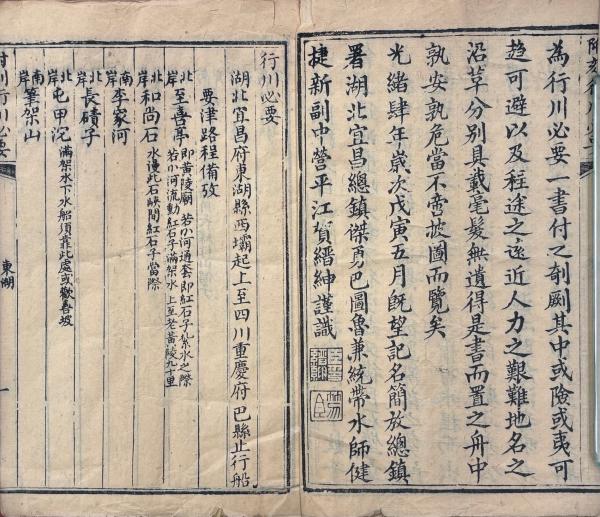 為行川必要一書付之剞劂其中或險或夷可
趋可避以及程途之遠近人力之艱難地名之
沿革分別具載毫髮無遺得是書而置之舟中
孰安孰危當不啻披圖而覽矣
光緒肆年歲次戊寅五月既望記名簡放總鎮
署湖北宜昌總鎮傑勇巴圖魯兼統帶水師健
捷新副中營平江賀縉紳謹識
行川必要
湖北宜昌府東湖縣西壩起上至四川重慶府巴縣止行船
要津路程備攷
北岸 至喜亭 即黃陵廟 若小河通套即紅石子紮水之際
若小河流動紅石子滿架水 上至老黃陵九十里
北岸 和尚石 水漫此石峽間紅石子當際
南岸 李家河
北岸 長磧子
北岸 屯甲沱 滿架水下水船須靠此處或歡喜坡
南岸 筆架山
行川必要
東湖
一